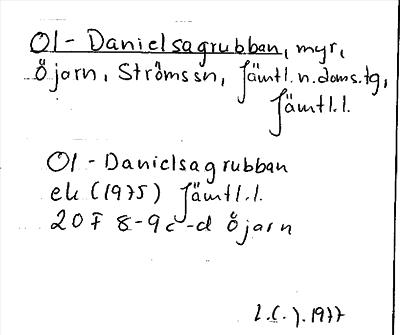 Ol-Danielsagrubban, myr,
Öjarn, Strömssn, Jämtl.n.doms.tg,
Jämtl.l.
Ol-Danielsagrubban
ek (1975) Jämtl.l.
20F 8-9c-d Öjarn
1977